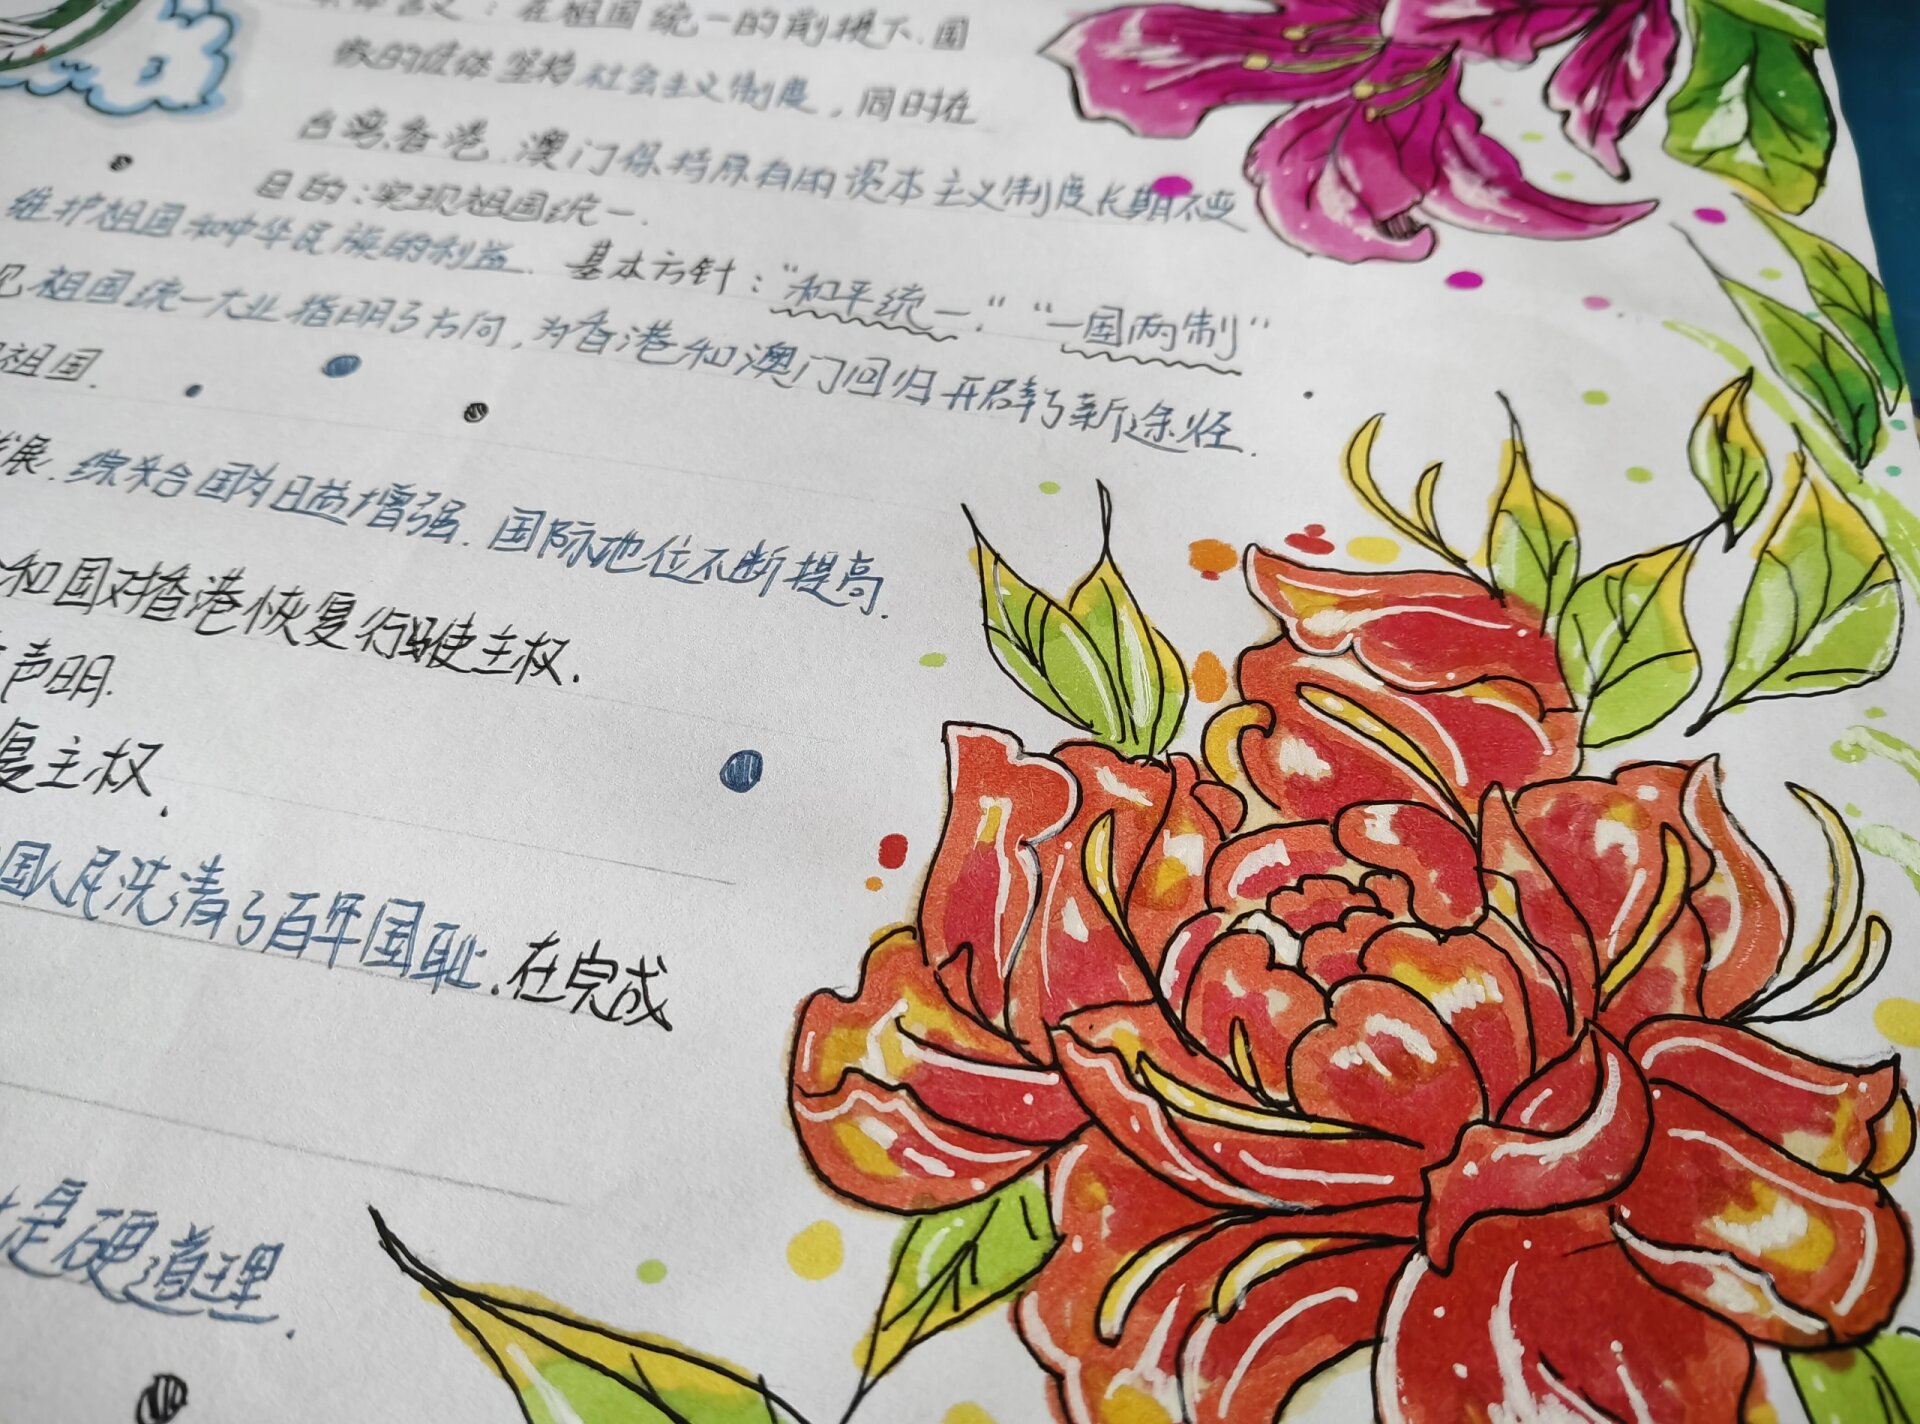 ：在祖国统一的前提下.国
家的主体坚持社会主义制度，同时在
台湾.香港.澳门保持原有的资本主义制度长期不变
目的：实现祖国统一.
维护祖国和中华民族的利益. 基本方针：“和平统一.”“一国两制”
祖国统一大业指明了方向，为香港和澳门回归开辟了新途径.
祖国.
展.综合国力日益增强.国际地位不断提高.
和国对香港恢复行驶使主权.
声明.
复主权.
国人民洗清了百年国耻.在完成
是硬道理.